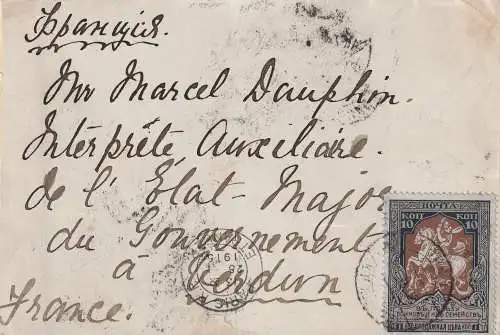 Франція.
Mr Marcel Dauphin.
Interprête Auxiliaire.
de l'Etat-Major
du Gouvernement
à Verdun
France.
ПОЧТА
КОП КОП
10 10